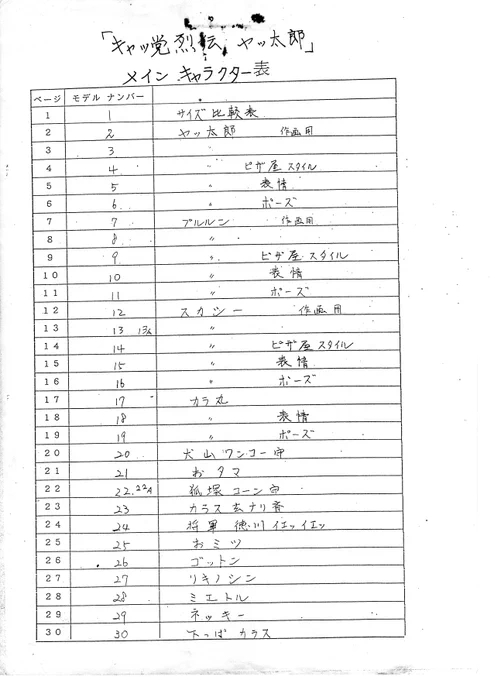 「キャッ党烈伝 ヤッ太郎」
メイン キャラクター表
ページ モデル ナンバー
1 1 サイズ比較表
2 2 ヤッ太郎 作画用
3 3 〃
4 4 〃 ピザ屋スタイル
5 5 〃 表情
6 6 〃 ポーズ
7 7 プルルン 作画用
8 8 〃
9 9 〃 ピザ屋スタイル
10 10 〃 表情
11 11 〃 ポーズ
12 12 スカシー 作画用
13 13 13A 〃
14 14 〃 ピザ屋スタイル
15 15 〃 表情
16 16 〃 ポーズ
17 17 カラ丸
18 18 〃 表情
19 19 〃 ポーズ
20 20 犬山ワンコー守
21 21 おタマ
22 22.22A 狐塚コーン守
23 23 カラス玄ナリ斎
24 24 将軍 徳川イエッイエッ
25 25 おミツ
26 26 ゴットン
27 27 リキノシン
28 28 ミエトル
29 29 ネッキー
30 30 下っぱカラス